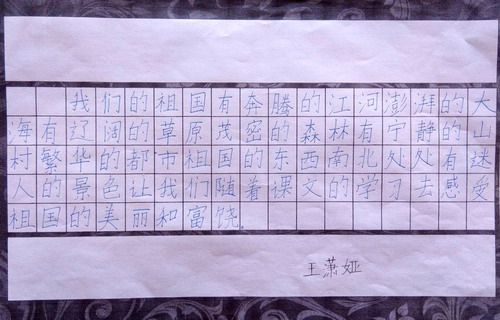 我们的祖国有奔腾的江河澎湃的大
海有辽阔的草原茂密的森林有宁静的山
村繁华的都市祖国的东西南北处处有迷
人的景色让我们随着课文的学习去感受
祖国的美丽和富饶。
王潇娅